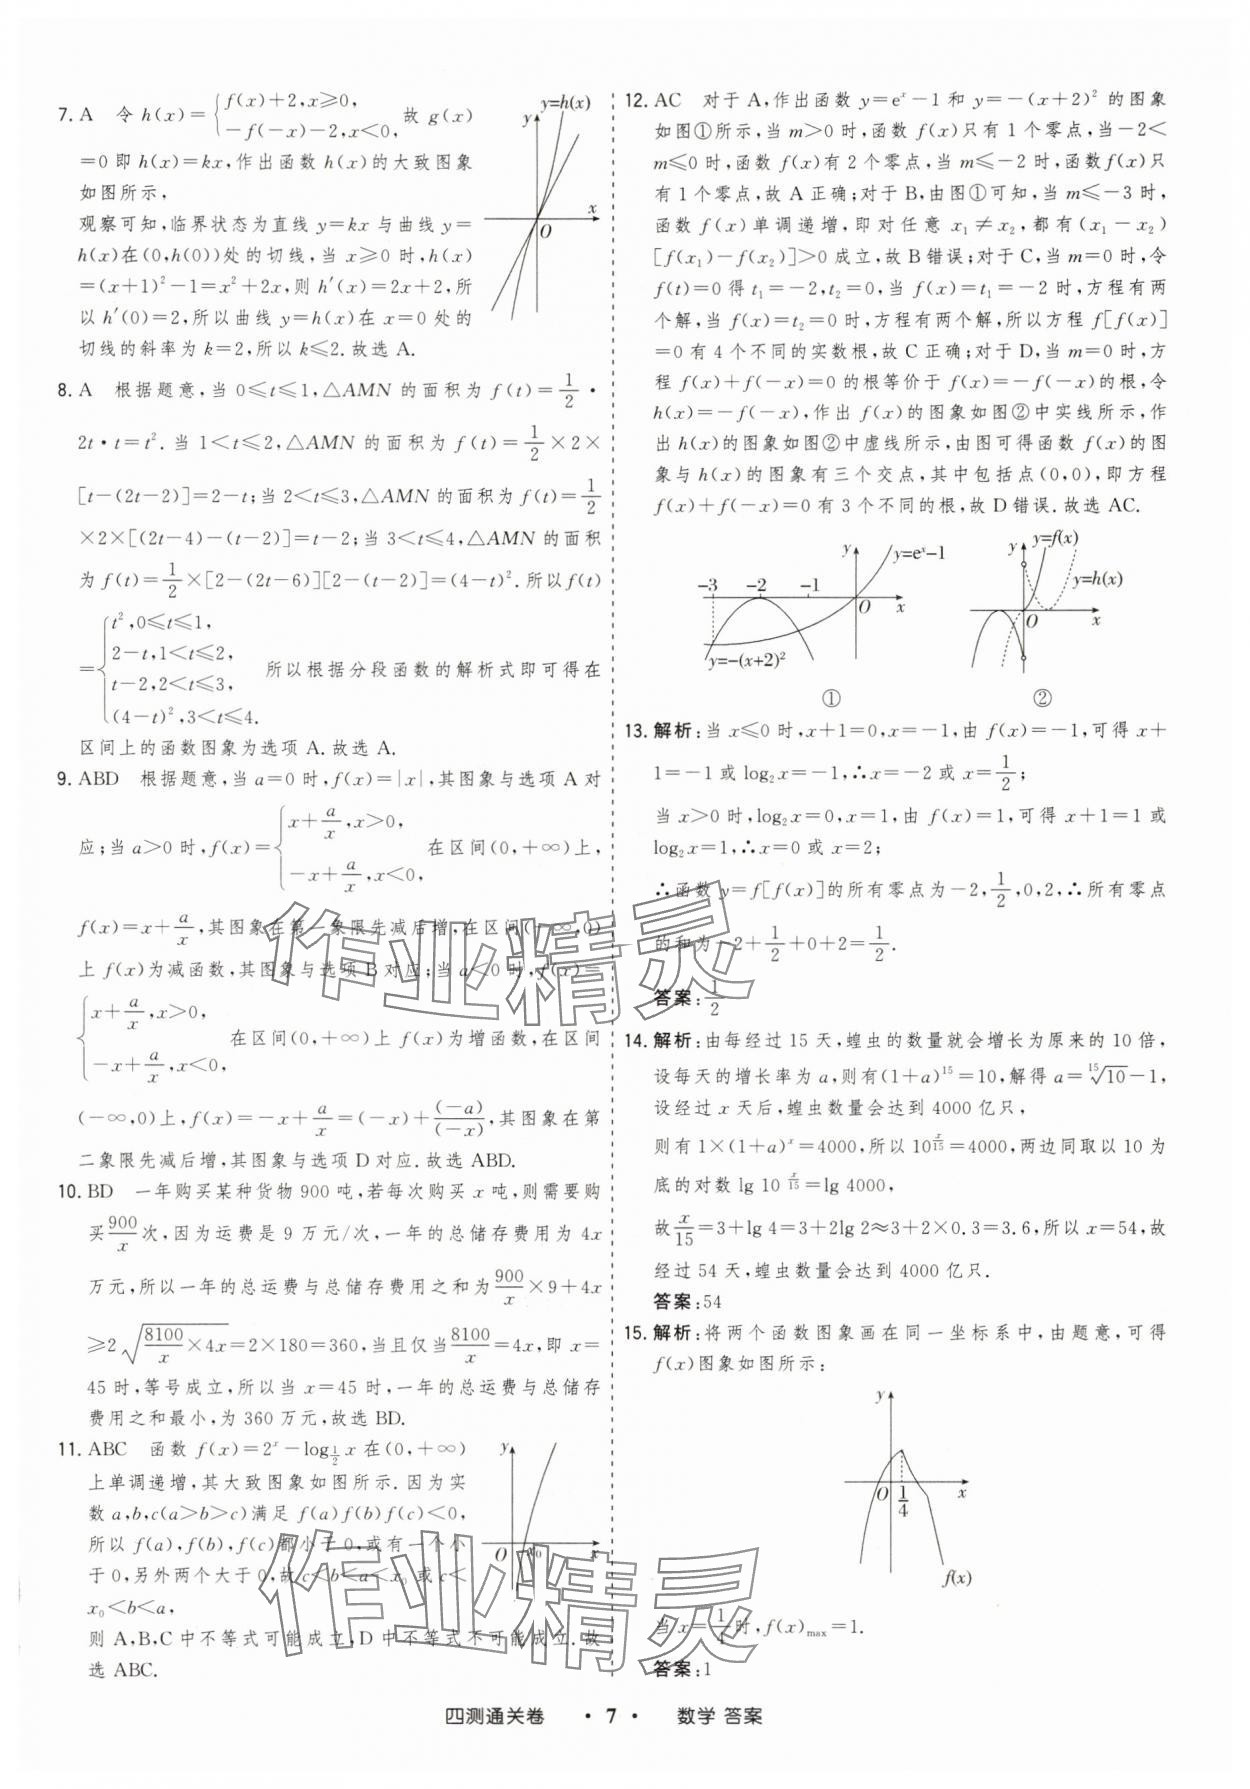 7. A 令 h(x)={f(x)+2,x≥0, -f(-x)-2,x<0, 故 g(x)
=0 即 h(x)=kx,作出函数 h(x)的大致图象
如图所示,
观察可知,临界状态为直线 y=kx 与曲线 y=
h(x)在(0,h(0))处的切线,当 x≥0 时,h(x)
=(x+1)²-1=x²+2x,则 h′(x)=2x+2,所
以 h′(0)=2,所以曲线 y=h(x)在 x=0 处的
切线的斜率为 k=2,所以 k≤2.故选 A.
y=h(x)
y
x
O
8. A 根据题意,当 0≤t≤1,△AMN 的面积为 f(t)=1/2·
2t·t=t².当 1<t≤2,△AMN 的面积为 f(t)=1/2×2×
[t-(2t-2)]=2-t;当 2<t≤3,△AMN 的面积为 f(t)=1/2
×2×[(2t-4)-(t-2)]=t-2;当 3<t≤4,△AMN 的面积
为 f(t)=1/2×[2-(2t-6)][2-(t-2)]=(4-t)².所以 f(t)
={t²,0≤t≤1,
2-t,1<t≤2,
t-2,2<t≤3,
(4-t)²,3<t≤4.
所以根据分段函数的解析式即可得在
区间上的函数图象为选项 A.故选 A.
9. ABD 根据题意,当 a=0 时,f(x)=|x|,其图象与选项 A 对
应;当 a>0 时,f(x)={x+a/x,x>0, -x+a/x,x<0, 在区间(0,+∞)上,
f(x)=x+a/x,其图象在第一象限先减后增,在区间(-∞,0)
上 f(x)为减函数,其图象与选项 B 对应;当 a<0 时,f(x)=
{x+a/x,x>0, -x+a/x,x<0, 在区间(0,+∞)上 f(x)为增函数,在区间
(-∞,0)上,f(x)=-x+a/x=(-x)+(-a)/(-x),其图象在第
二象限先减后增,其图象与选项 D 对应.故选 ABD.
10. BD 一年购买某种货物 900 吨,若每次购买 x 吨,则需要购
买900/x次,因为运费是 9 万元/次,一年的总储存费用为 4x
万元,所以一年的总运费与总储存费用之和为900/x×9+4x
≥2√(8100/x×4x)=2×180=360,当且仅当8100/x=4x,即 x=
45 时,等号成立,所以当 x=45 时,一年的总运费与总储存
费用之和最小,为 360 万元,故选 BD.
11. ABC 函数 f(x)=2ˣ-log_{1/2} x 在(0,+∞)
上单调递增,其大致图象如图所示.因为实
数 a,b,c(a>b>c)满足 f(a)f(b)f(c)<0,
所以 f(a),f(b),f(c)都小于 0,或有一个小
于 0,另外两个大于 0,故 c<b<a<x₀ 或 c<
x₀<b<a,
则 A,B,C 中不等式可能成立,D 中不等式不可能成立.故
选 ABC.
y
O
x₀
x
12. AC 对于 A,作出函数 y=eˣ-1 和 y=-(x+2)² 的图象
如图①所示,当 m>0 时,函数 f(x)只有 1 个零点,当-2<
m≤0 时,函数 f(x)有 2 个零点,当 m≤-2 时,函数 f(x)只
有 1 个零点,故 A 正确;对于 B,由图①可知,当 m≤-3 时,
函数 f(x)单调递增,即对任意 x₁≠x₂,都有(x₁-x₂)
[f(x₁)-f(x₂)]>0 成立,故 B 错误;对于 C,当 m=0 时,令
f(t)=0 得 t₁=-2,t₂=0,当 f(x)=t₁=-2 时,方程有两
个解,当 f(x)=t₂=0 时,方程有两个解,所以方程 f[f(x)]
=0 有 4 个不同的实数根,故 C 正确;对于 D,当 m=0 时,方
程 f(x)+f(-x)=0 的根等价于 f(x)=-f(-x)的根,令
h(x)=-f(-x),作出 f(x)的图象如图②中实线所示,作
出 h(x)的图象如图②中虚线所示,由图可得函数 f(x)的图
象与 h(x)的图象有三个交点,其中包括点(0,0),即方程
f(x)+f(-x)=0 有 3 个不同的根,故 D 错误.故选 AC.
y
y=eˣ-1
-3 -2 -1
O
x
y=-(x+2)²
①
y
y=f(x)
y=h(x)
O
x
②
13. 解析:当 x≤0 时,x+1=0,x=-1,由 f(x)=-1,可得 x+
1=-1 或 log₂x=-1,∴x=-2 或 x=1/2;
当 x>0 时,log₂x=0,x=1,由 f(x)=1,可得 x+1=1 或
log₂x=1,∴x=0 或 x=2;
∴函数 y=f[f(x)]的所有零点为-2,1/2,0,2,∴所有零点
的和为-2+1/2+0+2=1/2.
答案:1/2
14. 解析:由每经过 15 天,蝗虫的数量就会增长为原来的 10 倍,
设每天的增长率为 a,则有(1+a)¹⁵=10,解得 a=¹⁵√10-1,
设经过 x 天后,蝗虫数量会达到 4000 亿只,
则有 1×(1+a)ˣ=4000,所以 10^{x/15}=4000,两边同取以 10 为
底的对数 lg 10^{x/15}=lg 4000,
故x/15=3+lg 4=3+2lg 2≈3+2×0.3=3.6,所以 x=54,故
经过 54 天,蝗虫数量会达到 4000 亿只.
答案:54
15. 解析:将两个函数图象画在同一坐标系中,由题意,可得
f(x)图象如图所示:
y
O
1/4
x
f(x)
当 x=1/4时,f(x)max=1.
答案:1
作业精灵
作业精灵
四测通关卷 · 7 · 数学 答案